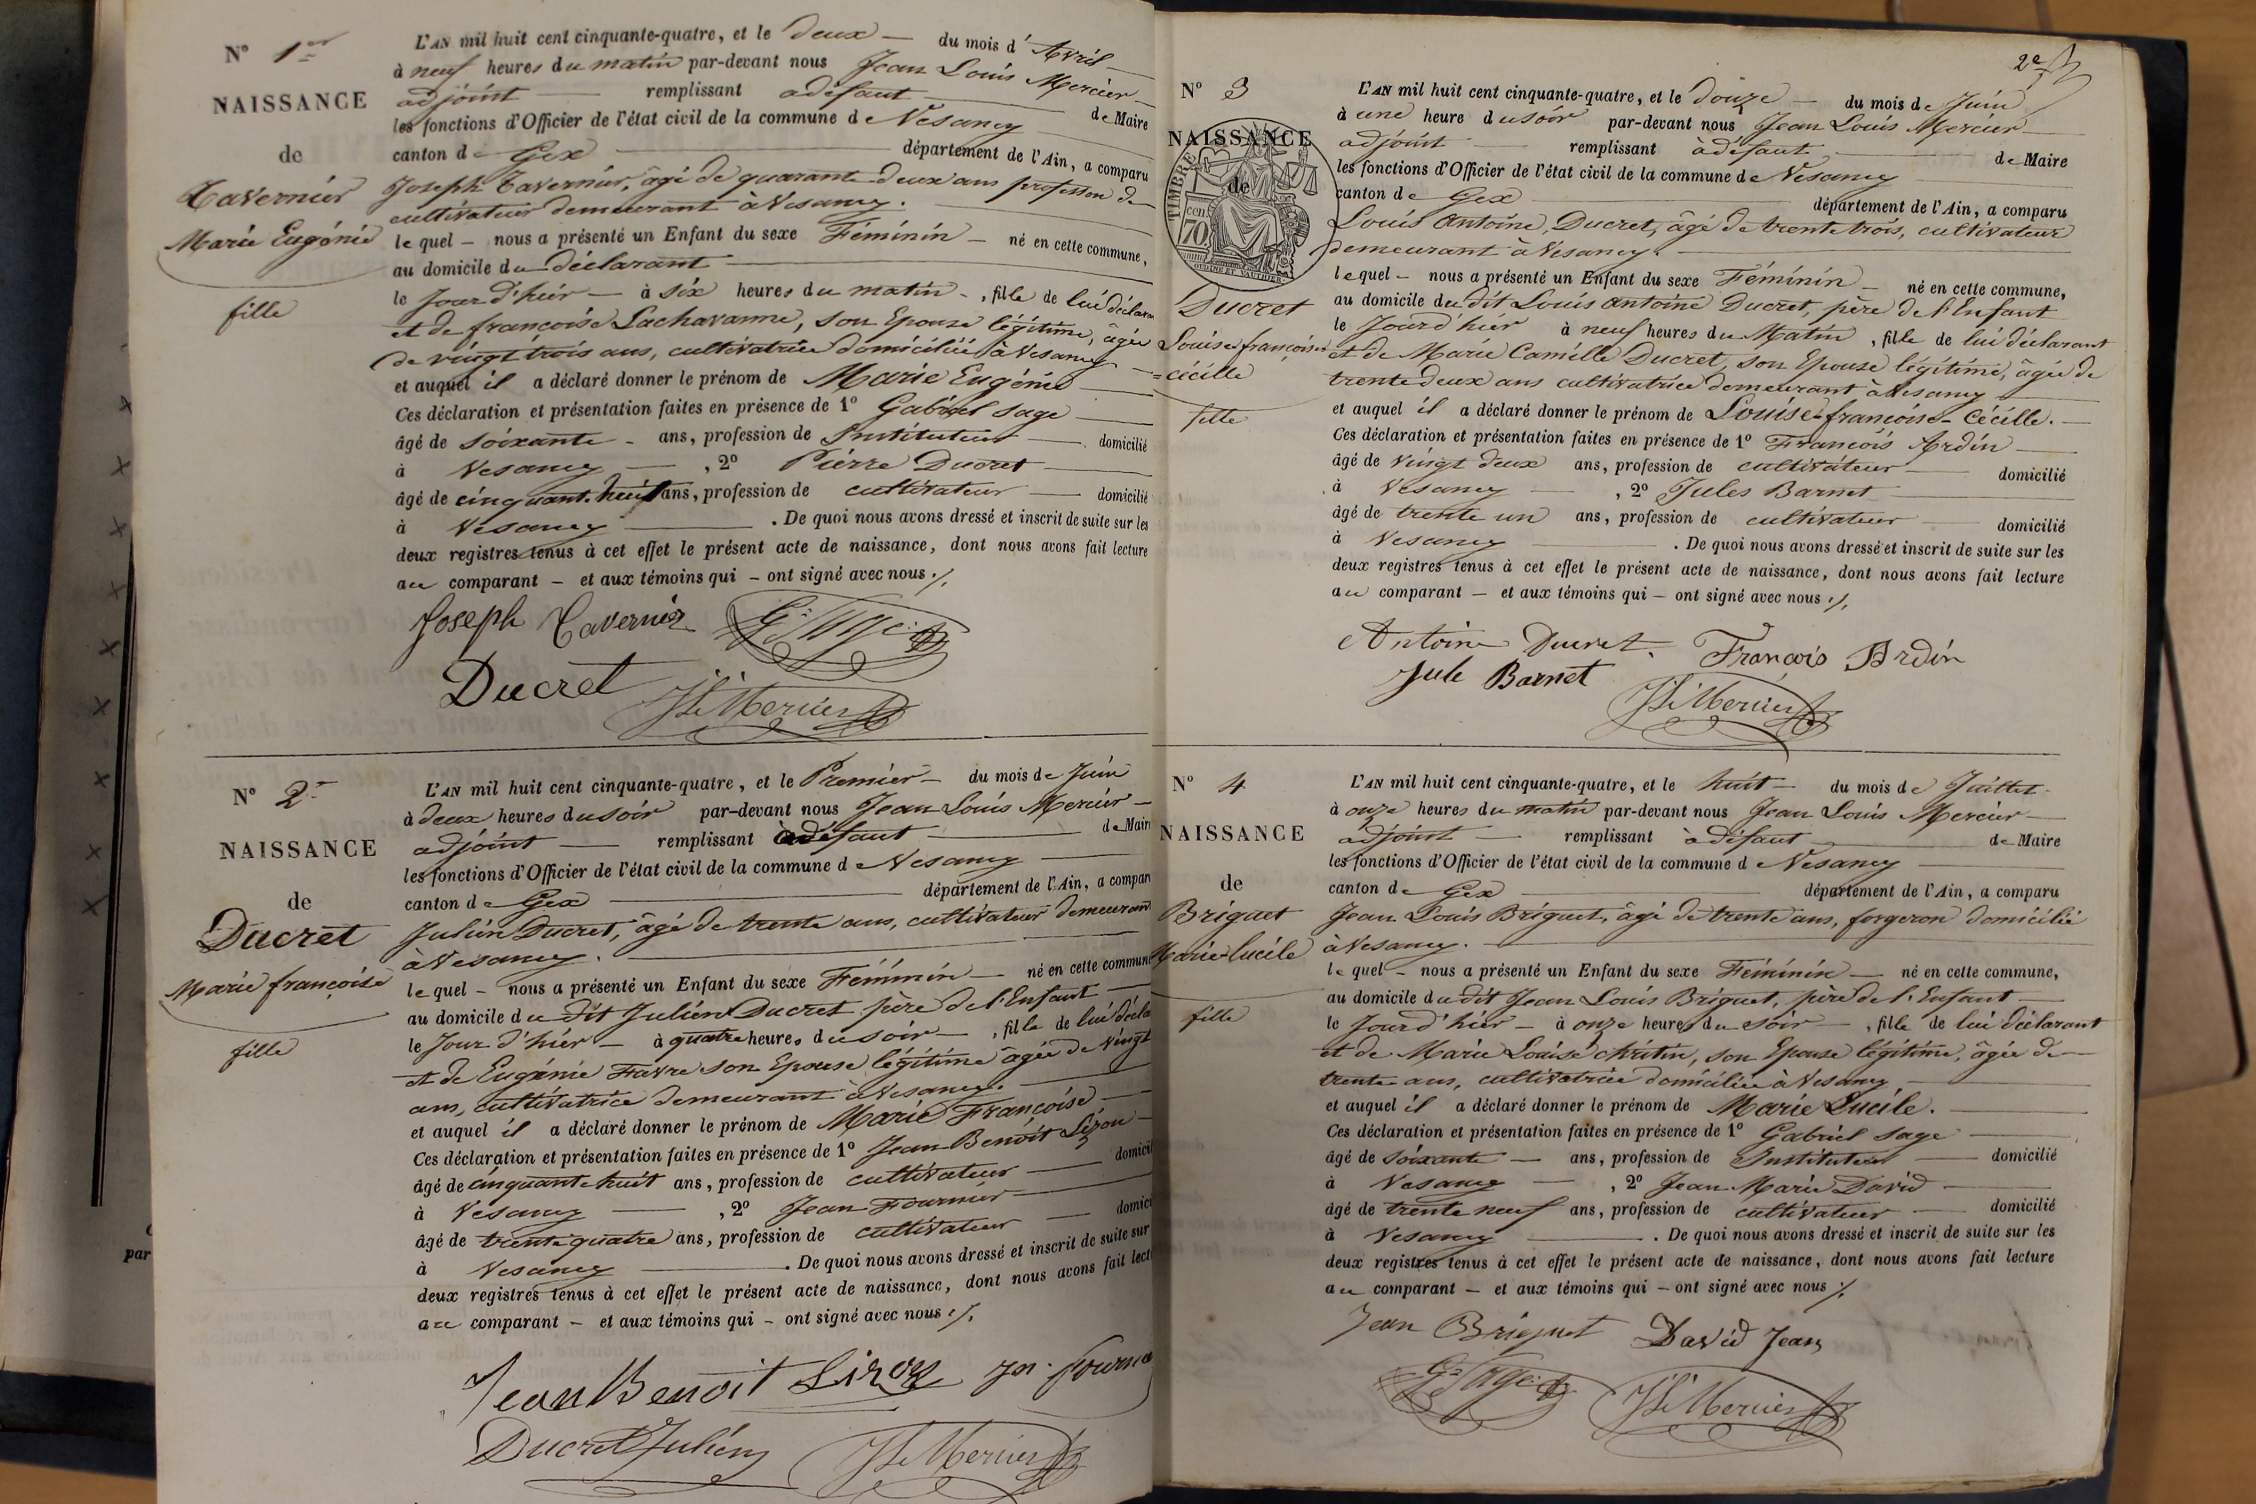 Nº 1er
NAISSANCE
de
Tavernier
Marie Eugénie
fille
L'AN mil huit cent cinquante-quatre, et le deux du mois d'Avril
à neuf heures du matin par-devant nous Jean Louis Mercier
adjoint remplissant à défaut de Maire
les fonctions d'Officier de l'état civil de la commune de Vesancy
canton de Gex département de l'Ain, a comparu
Joseph Tavernier, âgé de quarante deux ans profession de
cultivateur demeurant à Vesancy.
le quel nous a présenté un Enfant du sexe Féminin né en cette commune,
au domicile du déclarant
le Jour d'hiér à six heures du matin, fille de lui déclara
et de françoise Lachavanne, son Epouse légitime, âgée
de vingt trois ans, cultivatrice domiciliée à Vesancy
et auquel il a déclaré donner le prénom de Marie Eugénie
Ces déclaration et présentation faites en présence de 1º Gabriel Sage
âgé de soixante ans, profession de Instituteur domicilié
à Vesancy, 2º Piérre Ducret
âgé de cinquant. huit ans, profession de cultivateur domicilié
à Vesancy. De quoi nous avons dressé et inscrit de suite sur les
deux registres tenus à cet effet le présent acte de naissance, dont nous avons fait lecture
au comparant et aux témoins qui ont signé avec nous ./.
Joseph Tavernier G. Sage
Ducret JLs Mercier
Nº 2
NAISSANCE
de
Ducret
Marie françoise
fille
L'AN mil huit cent cinquante-quatre, et le Premier du mois de Juin
à deux heures du soir par-devant nous Jean Louis Mercier
adjoint remplissant à défaut de Mair
les fonctions d'Officier de l'état civil de la commune de Vesancy
canton de Gex département de l'Ain, a compar
Julién Ducret, âgé de trente ans, cultivateur demeurant
à Vesancy.
le quel nous a présenté un Enfant du sexe Féminin né en cette commun
au domicile du dit Julién Ducret père de l'Enfant
le Jour d'hiér à quatre heures du soir, fille de lui décla
et de Eugénie Favre son Epouse légitime âgée de vingt
ans, cultivatrice demeurant à Vesancy.
et auquel il a déclaré donner le prénom de Marie Françoise
Ces déclaration et présentation faites en présence de 1º Jean Benoit Lizon
âgé de cinquante huit ans, profession de cultivateur domicil
à Vesancy, 2º Jean Fournier
âgé de trente quatre ans, profession de cultivateur domici
à Vesancy. De quoi nous avons dressé et inscrit de suite sur
deux registres tenus à cet effet le présent acte de naissance, dont nous avons fait lect
au comparant et aux témoins qui ont signé avec nous ./.
Jean Benoit Lizon Jn. Fourne
Ducret Julién JLs Mercier
2e
Nº 3
NAISSANCE
de
TIMBRE
70 cen
Ducret
Louise françoise
=cécille
fille
L'AN mil huit cent cinquante-quatre, et le douze du mois de Juin
à une heure du soir par-devant nous Jean Louis Mercier
adjoint remplissant à défaut de Maire
les fonctions d'Officier de l'état civil de la commune de Vesancy
canton de Gex département de l'Ain, a comparu
Louis Antoine, Ducret, âgé de trente trois, cultivateur
demeurant à Vesancy.
le quel nous a présenté un Enfant du sexe Féminin né en cette commune,
au domicile du dit Louis Antoine Ducret, père de l'Enfant
le Jour d'hiér à neuf heures du Matin, fille de lui déclarant
et de Marie Camille Ducret, son Epouse légitime, âgée de
trente deux ans cultivatrice demeurant à Vesancy
et auquel il a déclaré donner le prénom de Louise-françoise-Cécille.
Ces déclaration et présentation faites en présence de 1º François Ardin
âgé de vingt deux ans, profession de cultivateur domicilié
à Vesancy, 2º Jules Barnet
âgé de trente un ans, profession de cultivateur domicilié
à Vesancy. De quoi nous avons dressé et inscrit de suite sur les
deux registres tenus à cet effet le présent acte de naissance, dont nous avons fait lecture
au comparant et aux témoins qui ont signé avec nous ./.
Antoine Ducret. François Ardin
Jule Barnet JLs Mercier
Nº 4
NAISSANCE
de
Briquet
Marie-lucile
fille
L'AN mil huit cent cinquante-quatre, et le huit du mois de Juillet
à onze heures du matin par-devant nous Jean Louis Mercier
adjoint remplissant à défaut de Maire
les fonctions d'Officier de l'état civil de la commune de Vesancy
canton de Gex département de l'Ain, a comparu
Jean Louis Briquet, âgé de trente ans, forgeron domicilié
à Vesancy.
le quel nous a présenté un Enfant du sexe Féminin né en cette commune,
au domicile du dit Jean Louis Briquet, père de l'Enfant
le Jour d'hiér à onze heures du soir, fille de lui déclarant
et de Marie Louise, son Epouse légitime, âgée de
trente ans, cultivatrice domiciliée à Vesancy
et auquel il a déclaré donner le prénom de Marie Lucile.
Ces déclaration et présentation faites en présence de 1º Gabriel Sage
âgé de soixante ans, profession de Instituteur domicilié
à Vesancy, 2º Jean Marie David
âgé de trente neuf ans, profession de cultivateur domicilié
à Vesancy. De quoi nous avons dressé et inscrit de suite sur les
deux registres tenus à cet effet le présent acte de naissance, dont nous avons fait lecture
au comparant et aux témoins qui ont signé avec nous ./.
Jean Briquet David Jean
G. Sage JLs Mercier